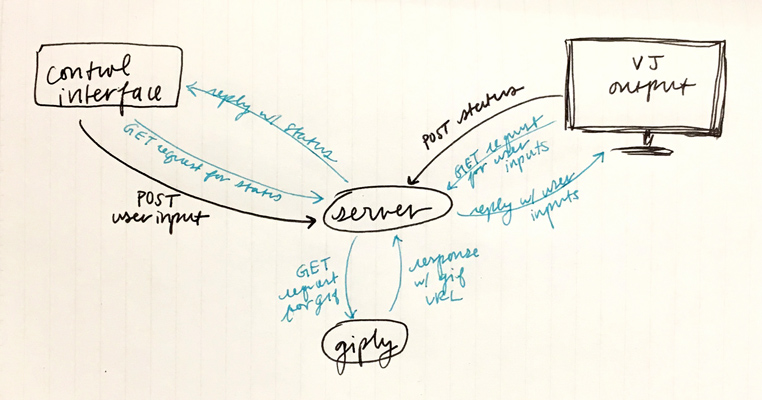 control
interface
reply w/ status
GET request for status
POST
user input
VJ
output
POST status
GET request
for user
inputs
reply w/ user
inputs
server
GET
request
for gif
response
w/ gif
URL
giply